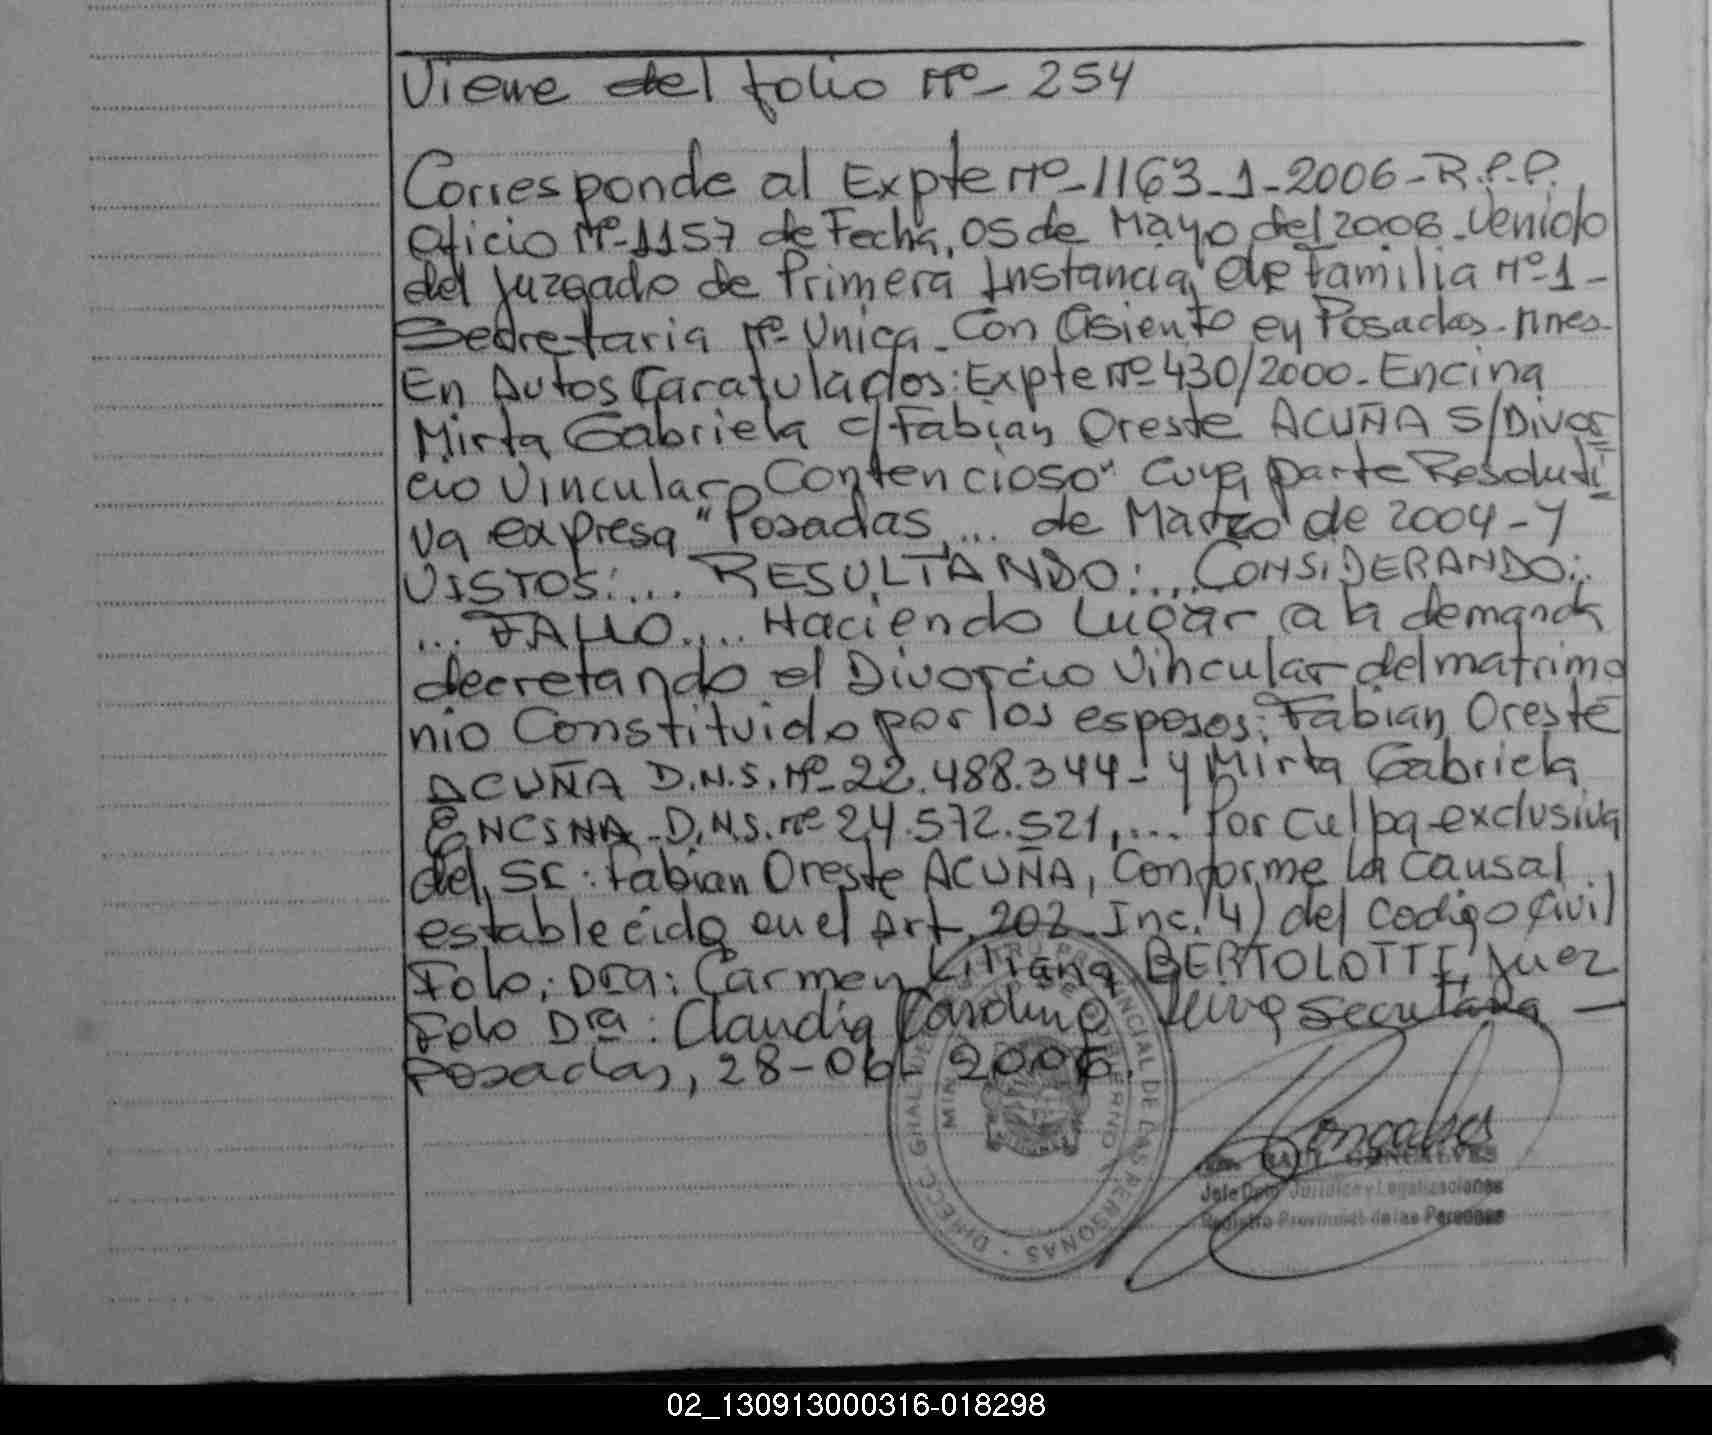 Viene del folio Nº- 254
Corresponde al Expte Nº-1163-1-2006-R.P.P.
oficio Nº-1157 de Fecha, 05 de Mayo del 2006-Venido
del Juzgado de Primera Instancia de Familia Nº1-
Secretaria Nº Unica-Con Asiento en Posadas-Mnes-
En Autos Caratulados: Expte Nº 430/2000-Encina
Mirta Gabriela c/Fabian Oreste ACUÑA S/Divor
cio Vincular Contencioso" cuya parte Resoluti
va expresa "Posadas,... de Marzo de 2004-Y
VISTOS:... RESULTANDO:... CONSIDERANDO:
... FALLO.... Haciendo Lugar a la demanda
decretando el Divorcio Vincular del matrimo
nio Constituido por los esposos: Fabian Oreste
ACUÑA D.N.I. Nº-22.488.344-y Mirta Gabriela
ENCINA-D.N.I. Nº 24.572.521,... Por Culpa exclusiva
del, Sr: Fabian Oreste ACUÑA, Conforme la Causal
establecida en el Art. 202-Inc. 4) del Codigo Civil
Fdo; Dra: Carmen Liliana BERTOLOTTI, Juez
Fdo Dra: Claudia Carolina Secretaria -
Posadas, 28-06-2006.
DIRECC. GRAL. DEL REGISTRO PROVINCIAL DE LAS PERSONAS
Goncalves
RAUL GONCALVES
Jefe Dpto Juridico y Legalizaciones
Registro Provincial de las Personas
02_130913000316-018298